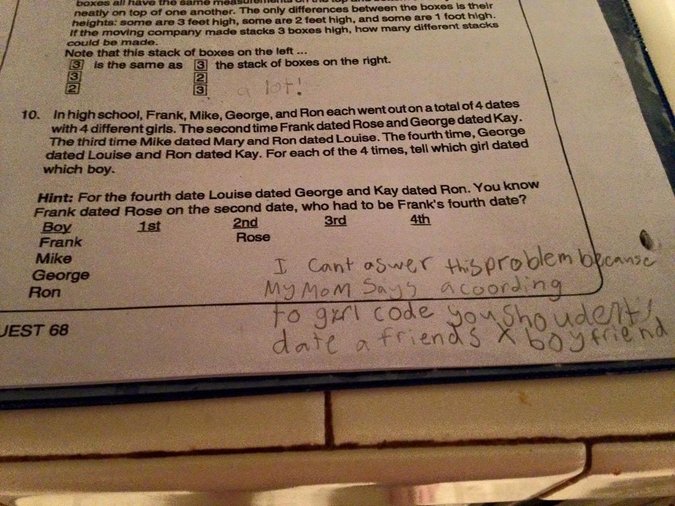 boxes all have the same
neatly on top of one another. The only differences between the boxes is their
heights: some are 3 feet high, some are 2 feet high, and some are 1 foot high.
If the moving company made stacks 3 boxes high, how many different stacks
could be made.
Note that this stack of boxes on the left ...
3 is the same as 3 the stack of boxes on the right.
3 2
2 3
a lot!
10. In high school, Frank, Mike, George, and Ron each went out on a total of 4 dates
with 4 different girls. The second time Frank dated Rose and George dated Kay.
The third time Mike dated Mary and Ron dated Louise. The fourth time, George
dated Louise and Ron dated Kay. For each of the 4 times, tell which girl dated
which boy.
Hint: For the fourth date Louise dated George and Kay dated Ron. You know
Frank dated Rose on the second date, who had to be Frank's fourth date?
Boy 1st 2nd 3rd 4th
Frank Rose
Mike
George
Ron
I cant aswer this problem because
My Mom Says acoording
to girl code you shoudent
date a friends X boyfriend
UEST 68